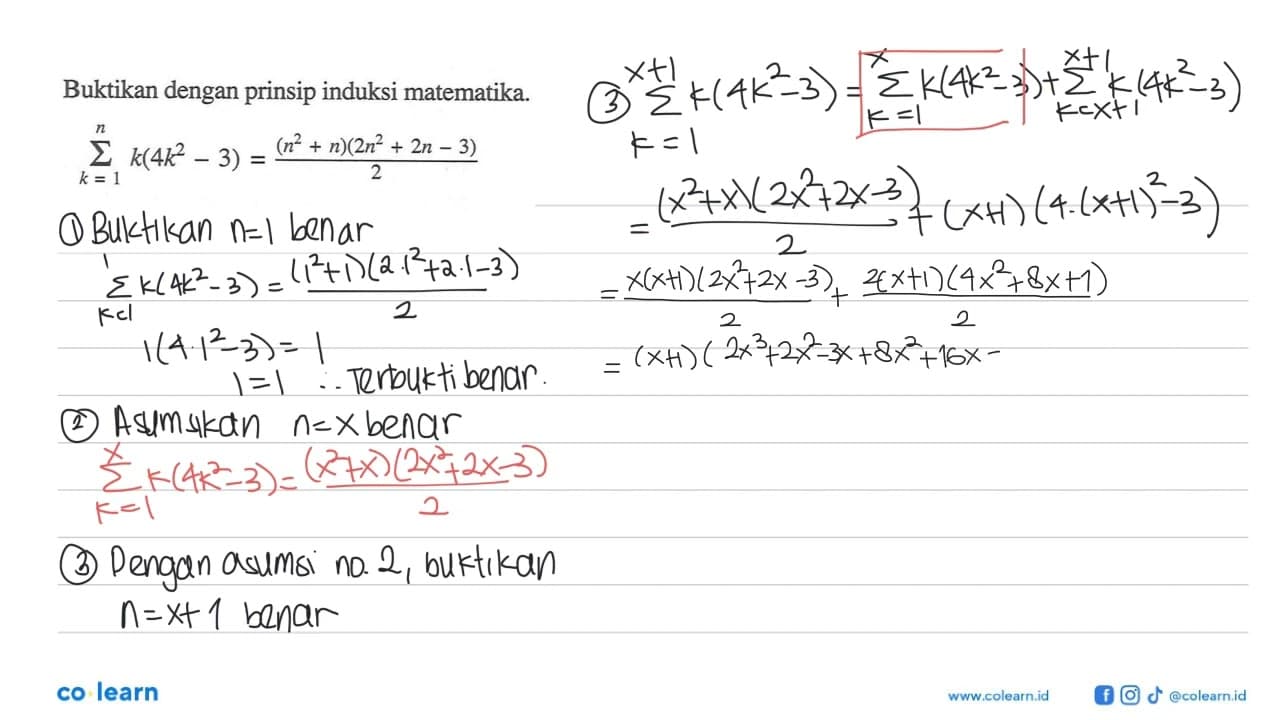 Buktikan dengan prinsip induksi matematika.
n
Σ k(4k² − 3) = (n² + n)(2n² + 2n − 3)
k = 1 2
① Buktikan n=1 benar
1
Σ k(4k²-3) = (1²+1)(2.1²+2.1-3)
k=1 2
1(4.1²-3) = 1
1=1 ∴ Terbukti benar.
② Asumsikan n=x benar
x
Σ k(4k²-3) = (x²+x)(2x²+2x-3)
k=1 2
③ Dengan asumsi no. 2, buktikan
n=x+1 benar
x+1 x x+1
③ Σ k(4k²-3) = Σ k(4k²-3) + Σ k(4k²-3)
k=1 k=1 k=x+1
= (x²+x)(2x²+2x-3) + (x+1)(4.(x+1)²-3)
2
= x(x+1)(2x²+2x-3) + 2(x+1)(4x²+8x+1)
2 2
= (x+1)(2x³+2x²-3x+8x²+16x-
co·learn
www.colearn.id
@colearn.id